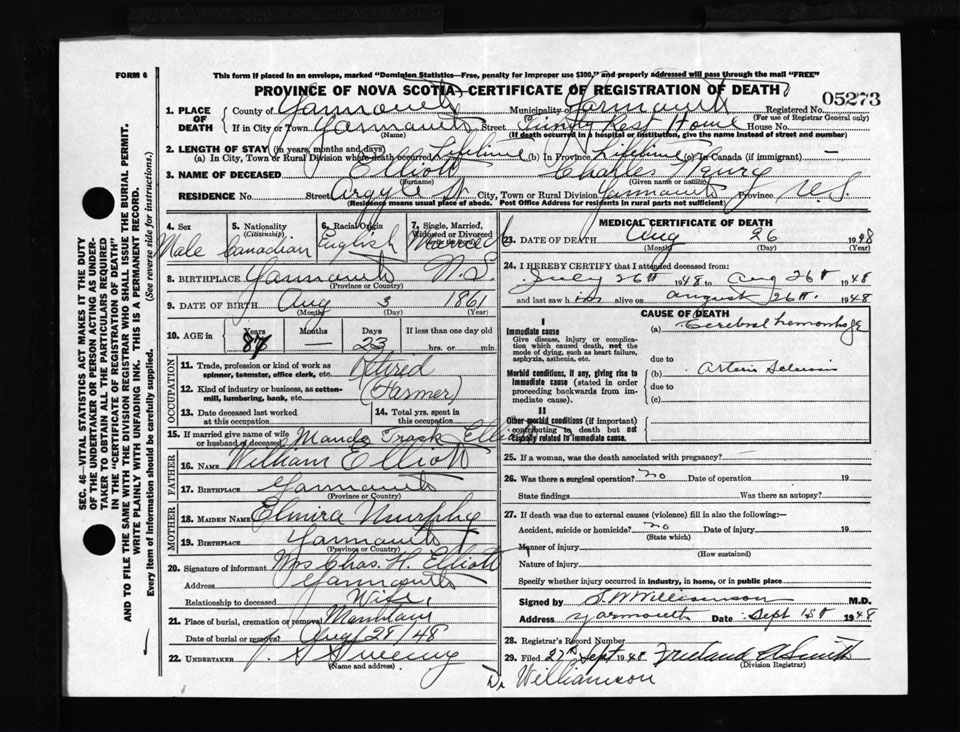 FORM 6
This form if placed in an envelope, marked "Dominion Statistics—Free, penalty for improper use $300," and properly addressed will pass through the mail "FREE"
PROVINCE OF NOVA SCOTIA—CERTIFICATE OF REGISTRATION OF DEATH
05273
1. PLACE OF DEATH
County of Yarmouth Municipality of Yarmouth Registered No.
(For use of Registrar General only)
If in City or Town Yarmouth Street Rest Home House No.
(Name) (If death occurred in a hospital or institution, give the name instead of street and number)
2. LENGTH OF STAY (in years, months and days)
(a) In City, Town or Rural Division where death occurred Lifetime (b) In Province Lifetime (c) In Canada (if immigrant) —
3. NAME OF DECEASED Elliott Charles Henry
(Surname) (Given name or names)
RESIDENCE No. Street Argyle St City, Town or Rural Division Yarmouth Province N.S.
(Residence means usual place of abode. Post Office Address for residents in rural parts not sufficient)
4. Sex Male
5. Nationality (Citizenship) Canadian
6. Racial Origin English
7. Single, Married, Widowed or Divorced Married
8. BIRTHPLACE Yarmouth N.S
(Province or Country)
9. DATE OF BIRTH Aug 3 1861
(Month) (Day) (Year)
10. AGE in Years Months Days If less than one day old
87 — 23 hrs. or min.
OCCUPATION
11. Trade, profession or kind of work as spinner, teamster, office clerk, etc. Retired
12. Kind of industry or business, as cotton-mill, lumbering, bank, etc. (Farmer)
13. Date deceased last worked at this occupation
14. Total yrs. spent in this occupation
15. If married give name of wife or husband of deceased Maude Trask Elliott
FATHER
16. NAME William Elliott
17. BIRTHPLACE Yarmouth
(Province or Country)
MOTHER
18. MAIDEN NAME Elmira Murphy
19. BIRTHPLACE Yarmouth
(Province or Country)
20. Signature of informant Mrs Chas. H. Elliott
Address Yarmouth
Relationship to deceased Wife
21. Place of burial, cremation or removal Mountain
Date of burial or removal Aug 28/48
22. UNDERTAKER Sweeny
(Name and address)
MEDICAL CERTIFICATE OF DEATH
23. DATE OF DEATH Aug 26 1948
(Month) (Day) (Year)
24. I HEREBY CERTIFY that I attended deceased from:
July 26th 1948 to Aug 26th 1948
and last saw him alive on august 26th 1948
CAUSE OF DEATH
I
Immediate cause (a) Cerebral hemorrhage
Give disease, injury or complication which caused death, not the mode of dying, such as heart failure, asphyxia, asthenia, etc.
due to
Morbid conditions, if any, giving rise to immediate cause (stated in order proceeding backwards from immediate cause). (b) Arterio Sclerosis
due to
(c)
II
Other morbid conditions (if important) contributing to death but not causally related to immediate cause.
25. If a woman, was the death associated with pregnancy?
26. Was there a surgical operation? no Date of operation 19
State findings Was there an autopsy?
27. If death was due to external causes (violence) fill in also the following:—
Accident, suicide or homicide? no Date of injury 19
(State which)
Manner of injury
(How sustained)
Nature of injury
Specify whether injury occurred in industry, in home, or in public place
Signed by S.W. Williamson M.D.
Address Yarmouth Date Sept 1st 1948
28. Registrar's Record Number
29. Filed 27th Sept 1948 Freeland A Smith
(Division Registrar)
Dr Williamson
SEC. 46—VITAL STATISTICS ACT MAKES IT THE DUTY
OF THE UNDERTAKER OR PERSON ACTING AS UNDER-
TAKER TO OBTAIN ALL THE PARTICULARS REQUIRED
IN THE "CERTIFICATE OF REGISTRATION OF DEATH"
AND TO FILE THE SAME WITH THE DIVISION REGISTRAR WHO SHALL ISSUE THE BURIAL PERMIT.
WRITE PLAINLY WITH UNFADING INK. THIS IS A PERMANENT RECORD.
Every item of information should be carefully supplied. (See reverse side for instructions.)